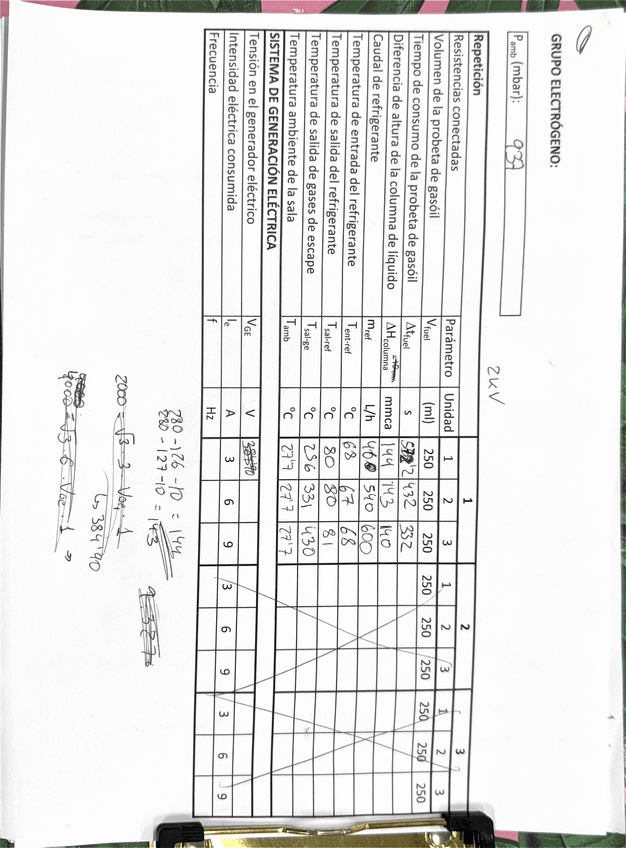 GRUPO ELECTRÓGENO:
Pamb (mbar): 937
2kV
Repetición 1 2 3
Resistencias conectadas Parámetro Unidad 1 2 3 1 2 3 1 2 3
Volumen de la probeta de gasóil Vfuel (ml) 250 250 250 250 250 250 250 250 250
Tiempo de consumo de la probeta de gasóil Δtfuel s 432 332
Diferencia de altura de la columna de líquido ΔHcolumna mmca 144 143 140
Caudal de refrigerante mref L/h 460 540 600
Temperatura de entrada del refrigerante Tent-ref °C 68 67 68
Temperatura de salida del refrigerante Tsal-ref °C 80 80 81
Temperatura de salida de gases de escape Tsal-ge °C 256 331 430
Temperatura ambiente de la sala Tamb °C 27'7 27'7 27'7
SISTEMA DE GENERACIÓN ELÉCTRICA
Tensión en el generador eléctrico VGE V
Intensidad eléctrica consumida Ie A 3 6 9 3 6 9 3 6 9
Frecuencia f Hz
280-126-10=144
280-127-10=143
2000=√3·3·VGE·1
↳384'90
=√3·6·VGE·1 →